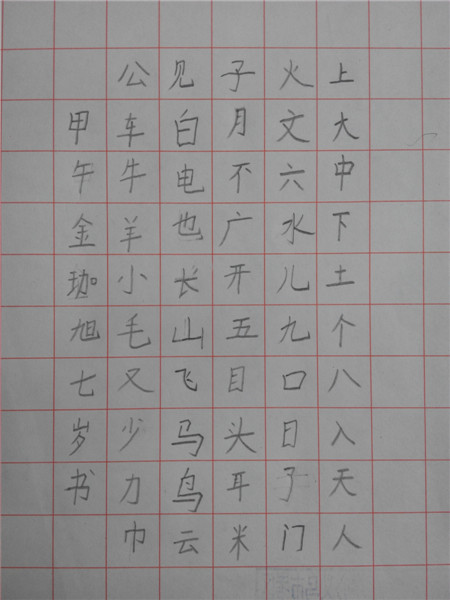 上大中下土个八入天人
火文六水儿九口日了门
子月不广开五目头耳米
见白电也长山飞马鸟云
公车牛羊小毛又少力巾
甲午金珈旭七岁书